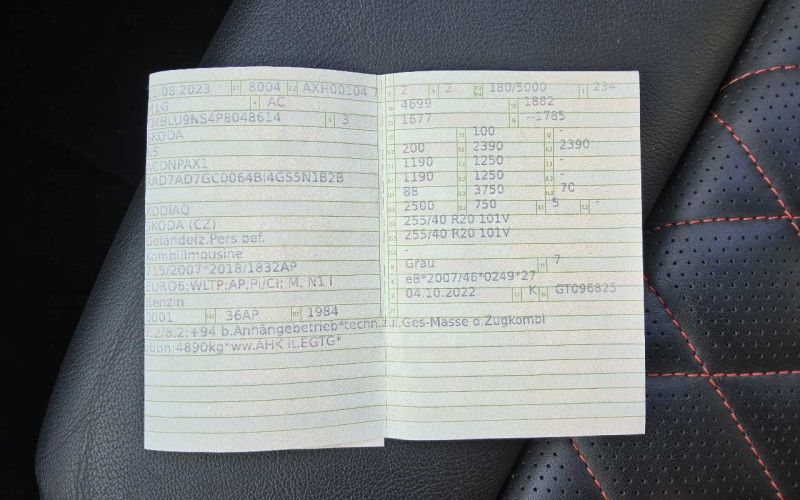 1.08.2023 8004 AXH00104 7
1G AC
MBLU9NS4P8048614 3
SKODA
S
ACDNPAX1
AAD7AD7GC0064BI4GS5N1B2B
KODIAQ
SKODA (CZ)
Geländefz.Pers.bef.
Kombilimousine
715/2007*2018/1832AP
EURO6;WLTP;AP;PI/CI; M, N1 I
Benzin
0001 36AP 1984
7.2/8.2:+94 b.Anhängebetrieb*techn.zul.Ges-Masse d.Zugkombi
ation:4890kg*ww.AHK lt.EGTG*
2 2 180/5000 234
4699 1882
1677 --1785
100 -
200 2390 2390
1190 1250 -
1190 1250 -
88 3750 70
2500 750 5 -
255/40 R20 101V
255/40 R20 101V
-
Grau 7
e8*2007/46*0249*27
04.10.2022 K GT096825